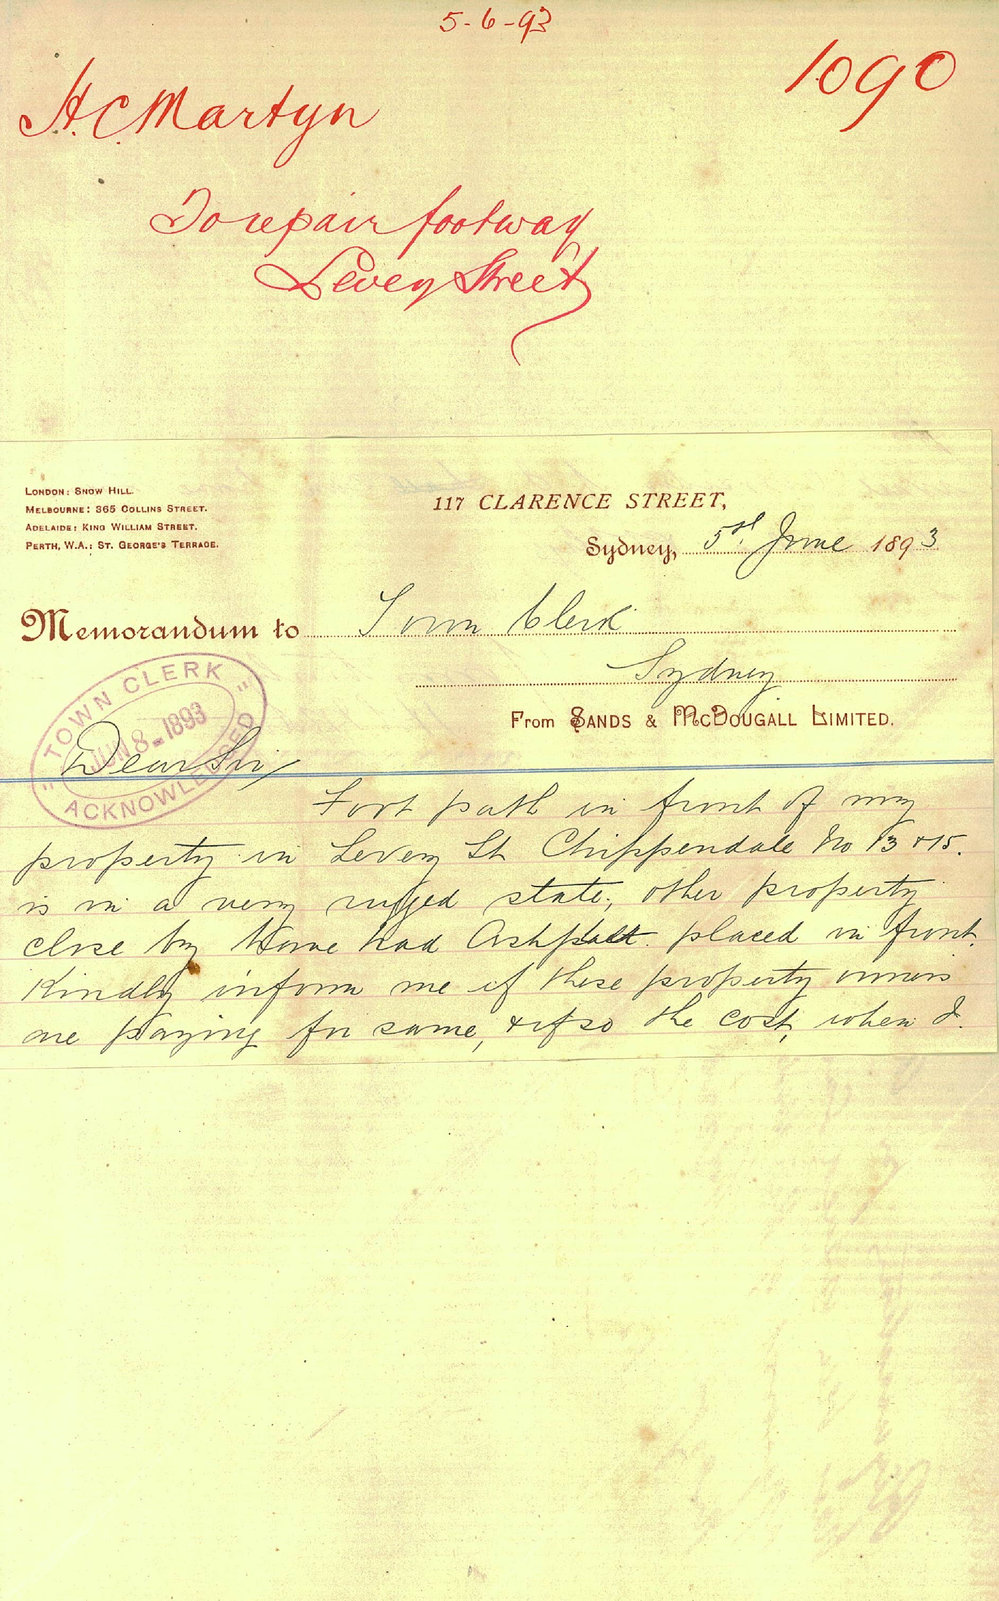 5-6-93
1090
H.C. Martyn
To repair footway
Levey Street
London: Snow Hill.
Melbourne: 365 Collins Street.
Adelaide: King William Street.
Perth, W.A.: St. George's Terrace.
117 CLARENCE STREET,
Sydney, 5st June 1893
Memorandum to Town Clerk
Sydney
From Sands & McDougall Limited.
TOWN CLERK
JUN 8-1893
ACKNOWLEDGED
Dear Sir/
Foot path in front of my
property in Levey St Chippendale No 13 & 15.
is in a very rugged state, other property
close by have had Ashphalt placed in front.
Kindly inform me if these property owners
are paying for same, & if so the cost, when I.